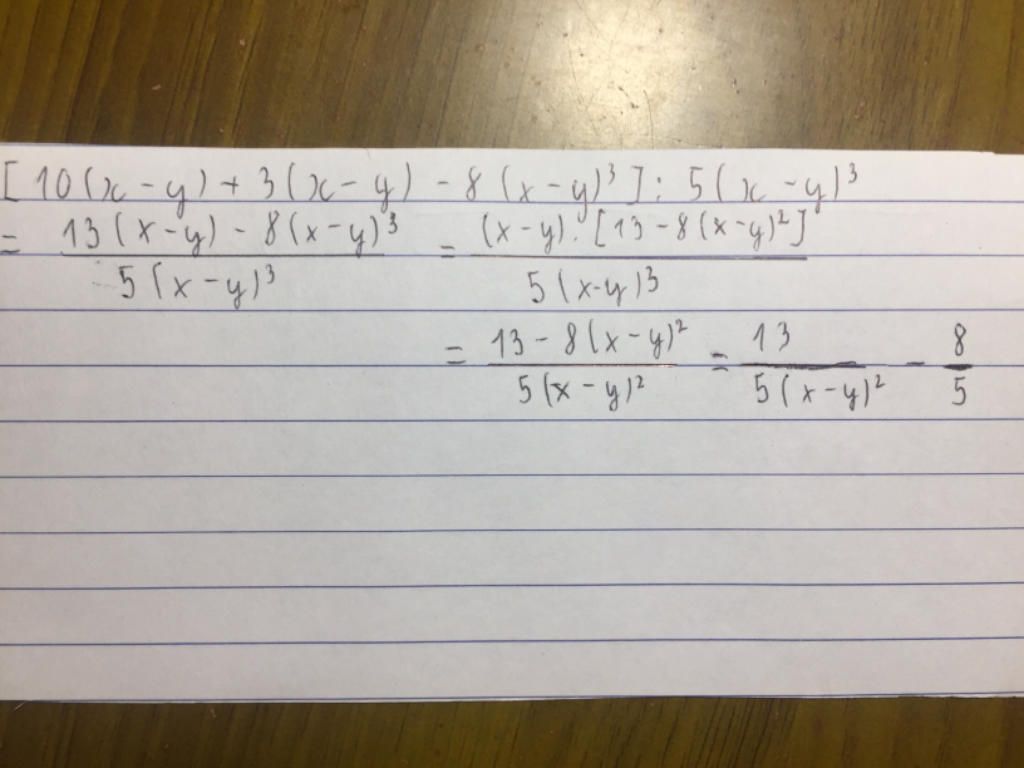 [ 10(x - y) + 3(x - y) - 8 (x - y)³ ] : 5(x - y)³
= 13(x - y) - 8(x - y)³ / 5(x - y)³ = (x - y) . [13 - 8(x - y)²] / 5(x - y)³
= 13 - 8(x - y)² / 5(x - y)² = 13 / 5(x - y)² - 8 / 5